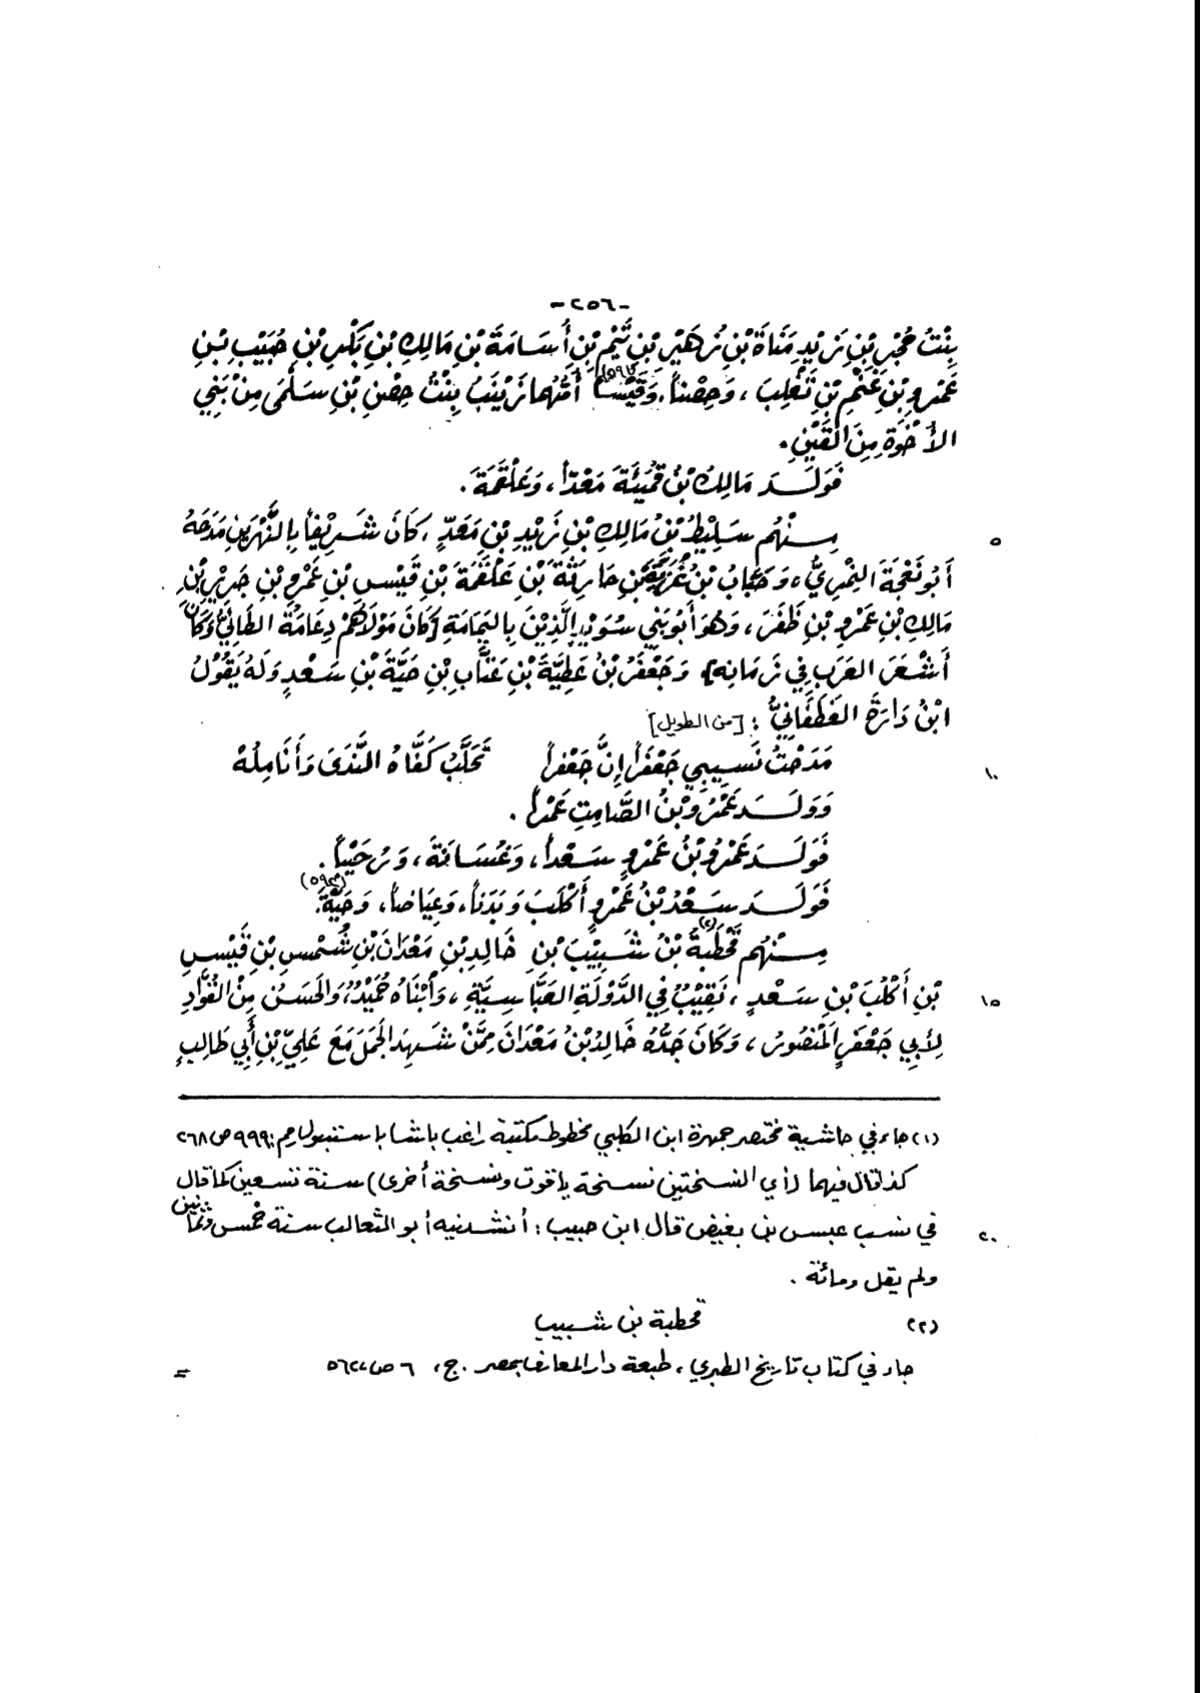 -٢٥٦-
بِنْتُ حُجْرِ بْنِ زَيْدِ مَنَاةَ بْنِ زُهَيْرِ بْنِ تَيْمِ بْنِ أُسَامَةَ بْنِ مَالِكِ بْنِ بَكْرِ بْنِ حُبَيْبِ بْنِ
عَمْرِو بْنِ غَنْمِ بْنِ تَغْلِبَ ، وَحِصْناً، وَقَيْساً أُمُّهُمَا زَيْنَبُ بِنْتُ حِصْنِ بْنِ سَلْمَى مِنْ بَنِي
الأُخْوَةِ مِنَ القَيْنِ.
فَوَلَدَ مَالِكُ بْنُ قُمَيْئَةَ مَعْدّاً، وَعَلْقَمَةَ.
مِنْهُم سَلِيْطُ بْنُ مَالِكِ بْنِ زَيْدِ بْنِ مَعَدٍّ، كَانَ شَرِيْفاً بِالنَّهْرَيْنِ مَدَحَهُ
٥
أَبُو نَعْجَةَ النِّمْرِيُّ، وَحَبَابُ بْنُ بْنِ حَارِثَةَ بْنِ عَلْقَمَةَ بْنِ قَيْسِ بْنِ عَمْرِو بْنِ جَرِيْرِ بْنِ
مَالِكِ بْنِ عَمْرِو بْنِ ظَفَرَ ، وَهُوَ أَبُو بَنِي سُوَيْدٍ الَّذِيْنَ بِاليَمَامَةِ [كَانَ مَوْلَاهُمْ دِعَامَةُ الطَّائِيُّ وَكَانَ
أَشْعَرَ العَرَبِ فِي زَمَانِهِ] وَجَعْفَرُ بْنُ عَطِيَّةَ بْنِ عَتَّابِ بْنِ حَيَّةَ بْنِ سَعْدٍ وَلَهُ يَقُوْلُ
ابْنُ دَارَةَ الغَطَفَانِيُّ : [من الطويل]
مَدَحْتُ نَسِيبِي جَعْفَراً إِنَّ جَعْفَراً تَحَلَّبُ كَفَّاهُ النَّدَى وَأَنَامِلُهْ
١٠
وَوَلَدَ عَمْرُو بْنُ الصَّامِتِ عَمْراً .
فَوَلَدَ عَمْرُو بْنُ عَمْرٍو سَعْداً، وَغَسَّانَةَ، وَرُحَيْباً.
(٥٩٣)
فَوَلَدَ سَعْدُ بْنُ عَمْرٍو أَكْلَبَ وَبَدَناً، وَعِيَاضاً، وَحَيَّةَ.
مِنْهُم قَحْطَبَةُ (٢) بْنُ شَبِيْبَ بْنِ خَالِدِ بْنِ مَعْدَانَ بْنِ شَمْسِ بْنِ قَيْسِ
بْنِ أَكْلُبَ بْنِ سَعْدٍ ، نَقِيْبٌ فِي الدَّوْلَةِ العَبَّاسِيَّةِ ، وَابْنَاهُ حُمَيْدٌ، وَالحَسَنُ مِنَ القُوَّادِ
١٥
لِأَبِي جَعْفَرٍ المَنْصُوْرِ ، وَكَانَ جَدُّهُ خَالِدُ بْنُ مَعْدَانَ مِمَّنْ شَهِدَ الجَمَلَ مَعَ عَلِيِّ بْنِ أَبِي طَالِبٍ
(١) جاء في حاشية مختصر جمهرة ابن الكلبي مخطوط مكتبة راغب باشا باستنبول رقم: ٩٩٩ ص ٢٦٨
كذا قال فيهما (أي النسختين نسخة ياقوت ونسخة أخرى) سنة تسعين كما قال
في نسب عبس بن بغيض قال ابن حبيب : أنشدنيه أبو الثعالب سنة خمس وثمانين
٢٠
ولم يقل ومائة .
(٢) قحطبة بن شبيب
جاء في كتاب تاريخ الطبري ، طبعة دار المعارف بمصر . ج، ٦ ص
=